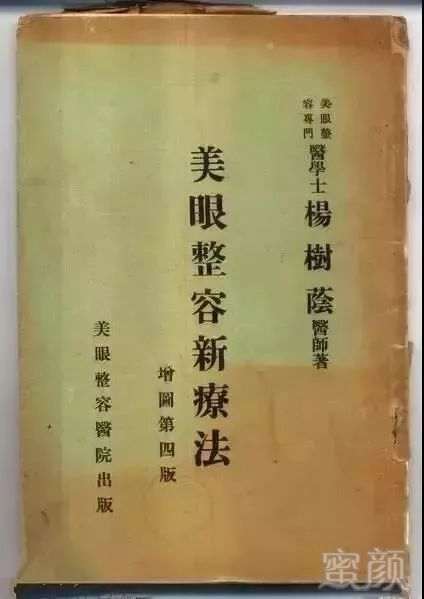 美眼整
容專門
醫學士楊樹蔭醫師著
美眼整容新療法
增圖第四版
美眼整容醫院出版
蜜颜